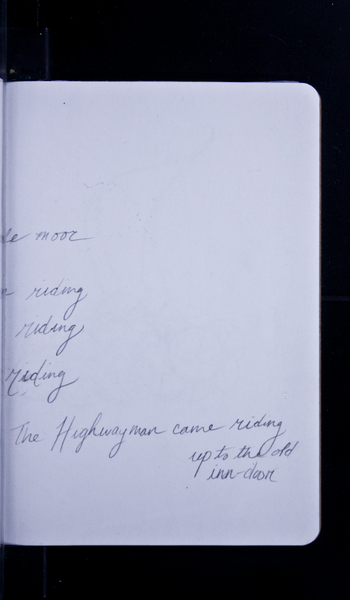 moor
riding
riding
riding
The Highwayman came riding
up to the old
inn-door